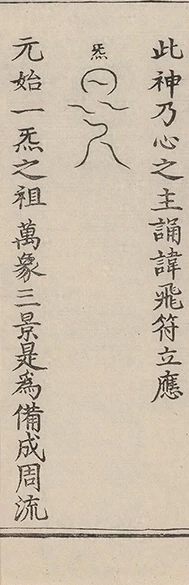 此神乃心之主誦諱飛符立應
炁
元始一炁之祖萬象三景是爲備成周流